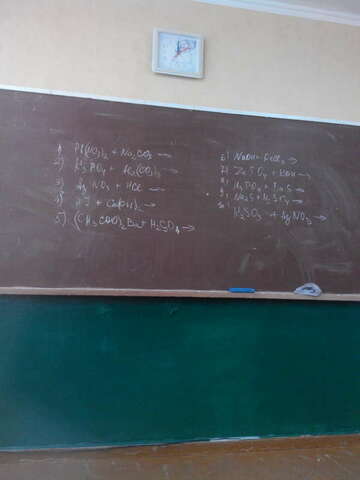 1) Pb(NO3)2 + Na2CO3 →
2) H3PO4 +
3) AgNO3 + HCl →
4)
5) (CH3COO)2Ba + H2SO4 →
6) NaOH + FeCl3 →
7) ZnSO4 + KOH →
8) H3PO4 +
9) Na2S + H2SO4 →
10) H2SO3 + AgNO3 →